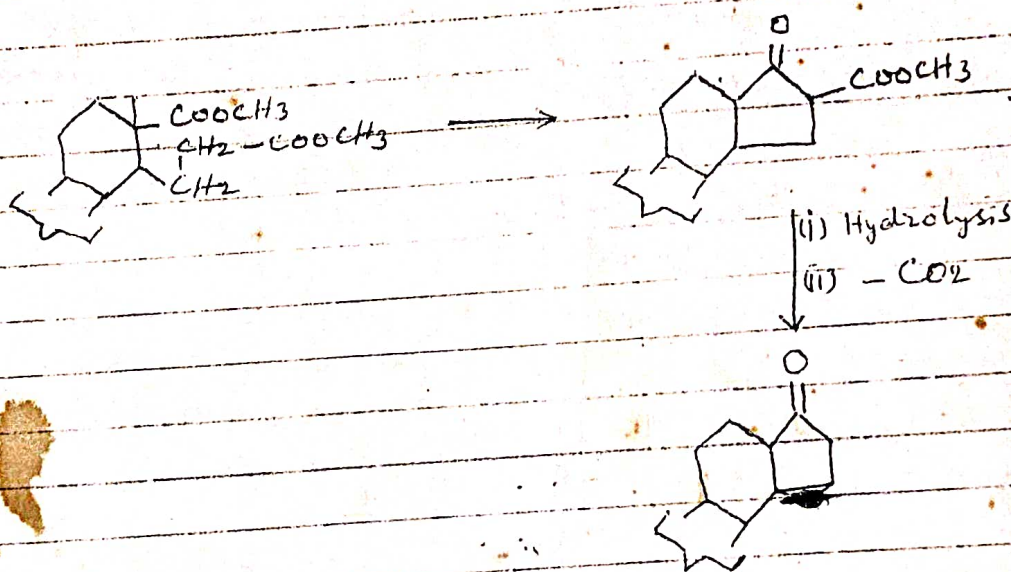 O
COOCH3
COOCH3
CH2-COOCH3
CH2
(i) Hydrolysis
(ii) - CO2
O